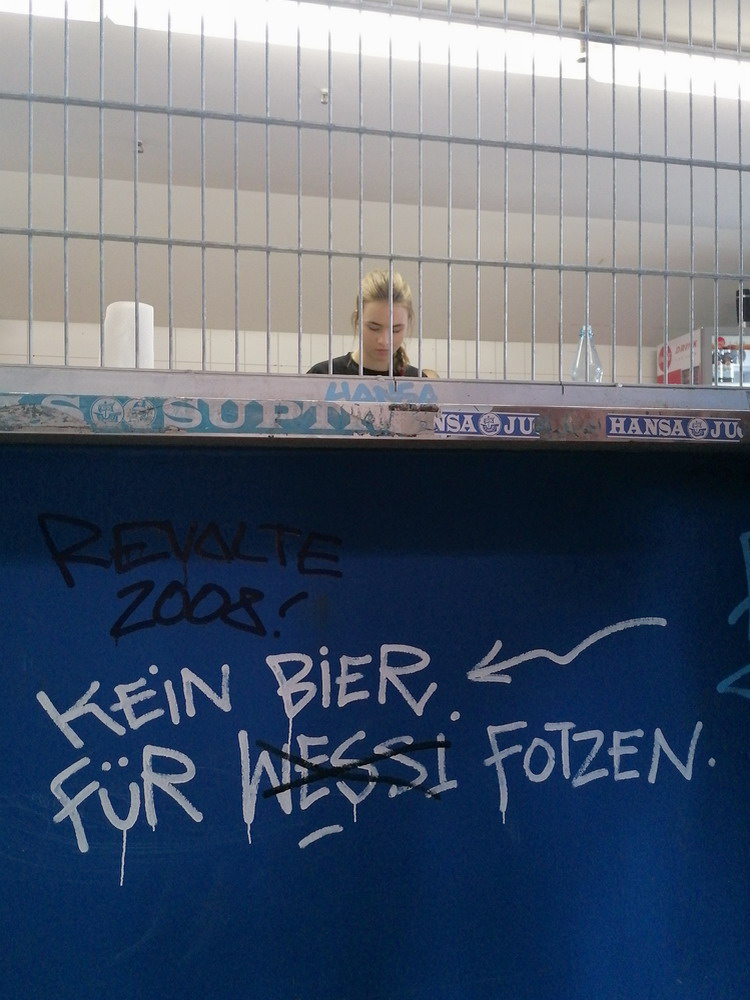 HANSA
SUPT
NSA JU
HANSA JU
REVOLTE
2008!
KEiN BiER
FÜR WESSi FOTZEN.